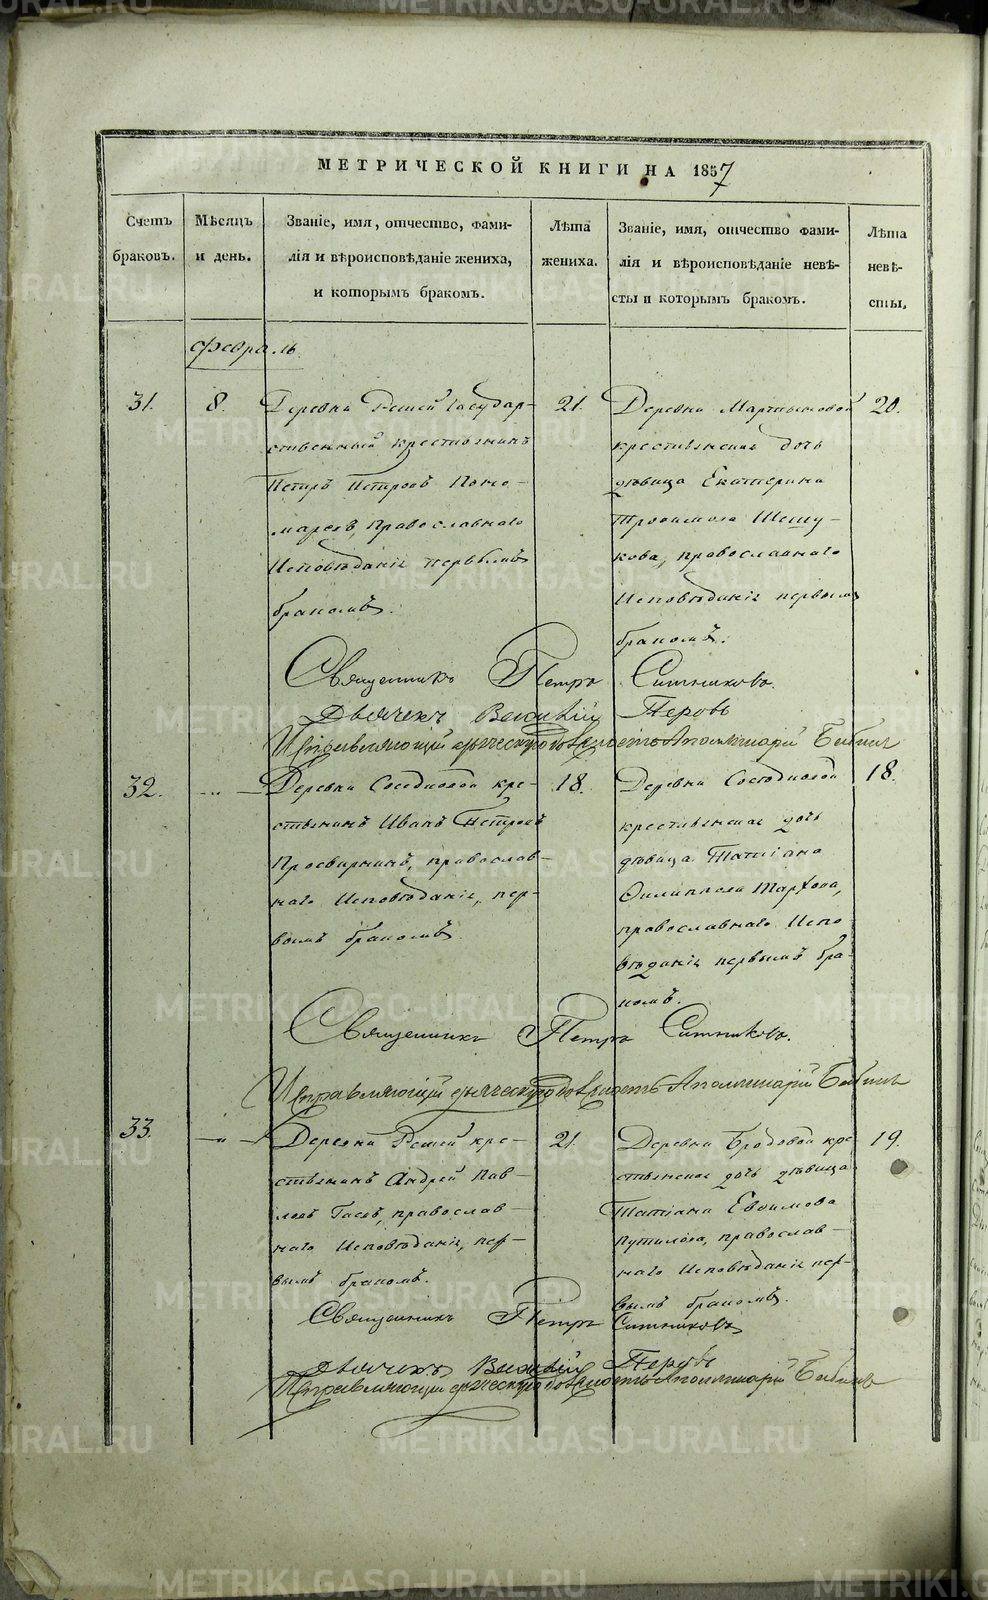 МЕТРИЧЕСКОЙ КНИГИ НА 1857
Счетъ браковъ.
Мѣсяцъ и день.
Званіе, имя, отчество, фами-
лія и вѣроисповѣданіе жениха,
и которымъ бракомъ.
Лѣта жениха.
Званіе, имя, отчество фами-
лія и вѣроисповѣданіе невѣ-
сты и которымъ бракомъ.
Лѣта невѣ-
сты.
Февраль
31.
8.
Деревни Государ-
ственный крестьянинъ
Петръ Петровъ Поно-
маревъ, православнаго
Исповѣданія первымъ
бракомъ.
21.
Деревни Мартыновой
крестьянская дочь
дѣвица Екатерина
Трофимова Шешу-
кова, православнаго
Исповѣданія первымъ
бракомъ.
20.
Священникъ Петръ Ситниковъ.
Дьячекъ Василій Перовъ
Исправляющій дьяческую должность Аполлинарій
32.
Деревни кре-
стьянинъ Иванъ Петровъ
Просвирнинъ, православ-
наго Исповѣданія, пер-
вымъ бракомъ.
18.
Деревни
крестьянская дочь
дѣвица Татіана
Филиппова
православнаго Испо-
вѣданія первымъ бра-
комъ.
18.
Священникъ Петръ Ситниковъ.
Исправляющій дьяческую должность Аполлинарій
33.
Деревни кре-
стьянинъ Андрей Пав-
ловъ православ-
наго Исповѣданія, пер-
вымъ бракомъ.
21.
Деревни Бродовой кре-
стьянская дочь дѣвица
Татіана Евфимова
Путилова, православ-
наго Исповѣданія пер-
вымъ бракомъ.
19.
Священникъ Петръ Ситниковъ
Дьячекъ Василій Перовъ
Исправляющій дьяческую должность Аполлинарій
METRIKI.GASO-URAL.RU